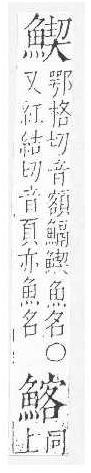 鄂格切音額魚名〇
又紅結切音頁亦魚名
同
上